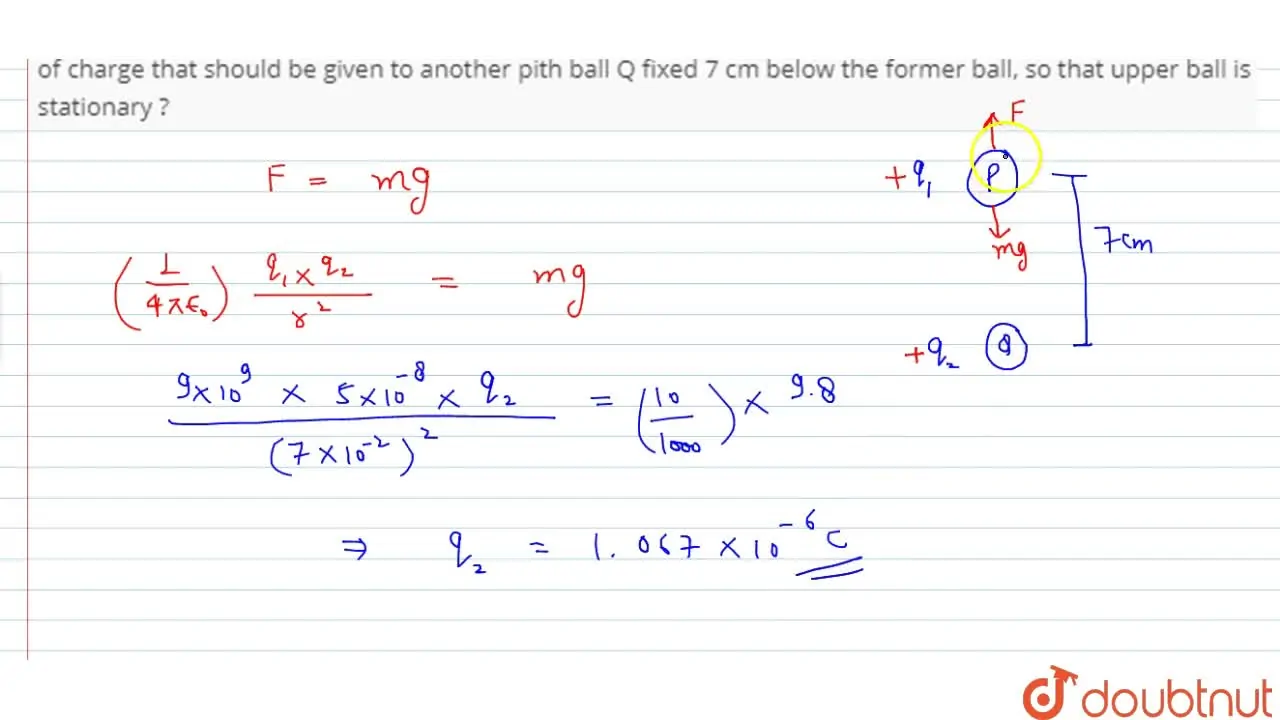 of charge that should be given to another pith ball Q fixed 7 cm below the former ball, so that upper ball is
stationary ?
F
F = mg
+q₁ P
mg
7cm
(1/4π∈₀) q₁×q₂/r² = mg
+q₂ Q
9×10⁹ × 5×10⁻⁸ × q₂/(7×10⁻²)² = (10/1000) × 9.8
⇒ q₂ = 1.067 × 10⁻⁶ C
doubtnut